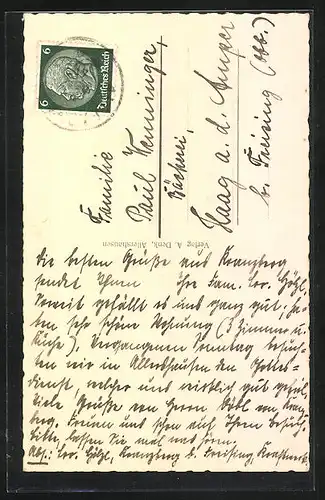 6 Deutsches Reich 6
Familie
Paul Wenninger,
Bäckerei,
Haag a. d. Amper
b. Freising (Obb.)
Verlag A. Denk, Allershausen
Die besten Grüße aus Kranzberg
sendet Ihnen Ihre Fam. Lor. Hölzl.
Soweit gefällt es uns ganz gut, ha-
ben sehr schöne Wohnung (3 Zimmer u.
Küche). Vergangenen Sonntag besuch-
ten wir in Allershausen den Gottes-
dienst, welcher uns wirklich gut gefiel.
Viele Grüße von Herrn Döbl von Kranz-
berg. Freuen uns schon auf Ihren Besuch.
Bitte lassen Sie mal was hören.
Abs.: Lor. Hölzl, Kranzberg b. Freising, Kraftwerk.